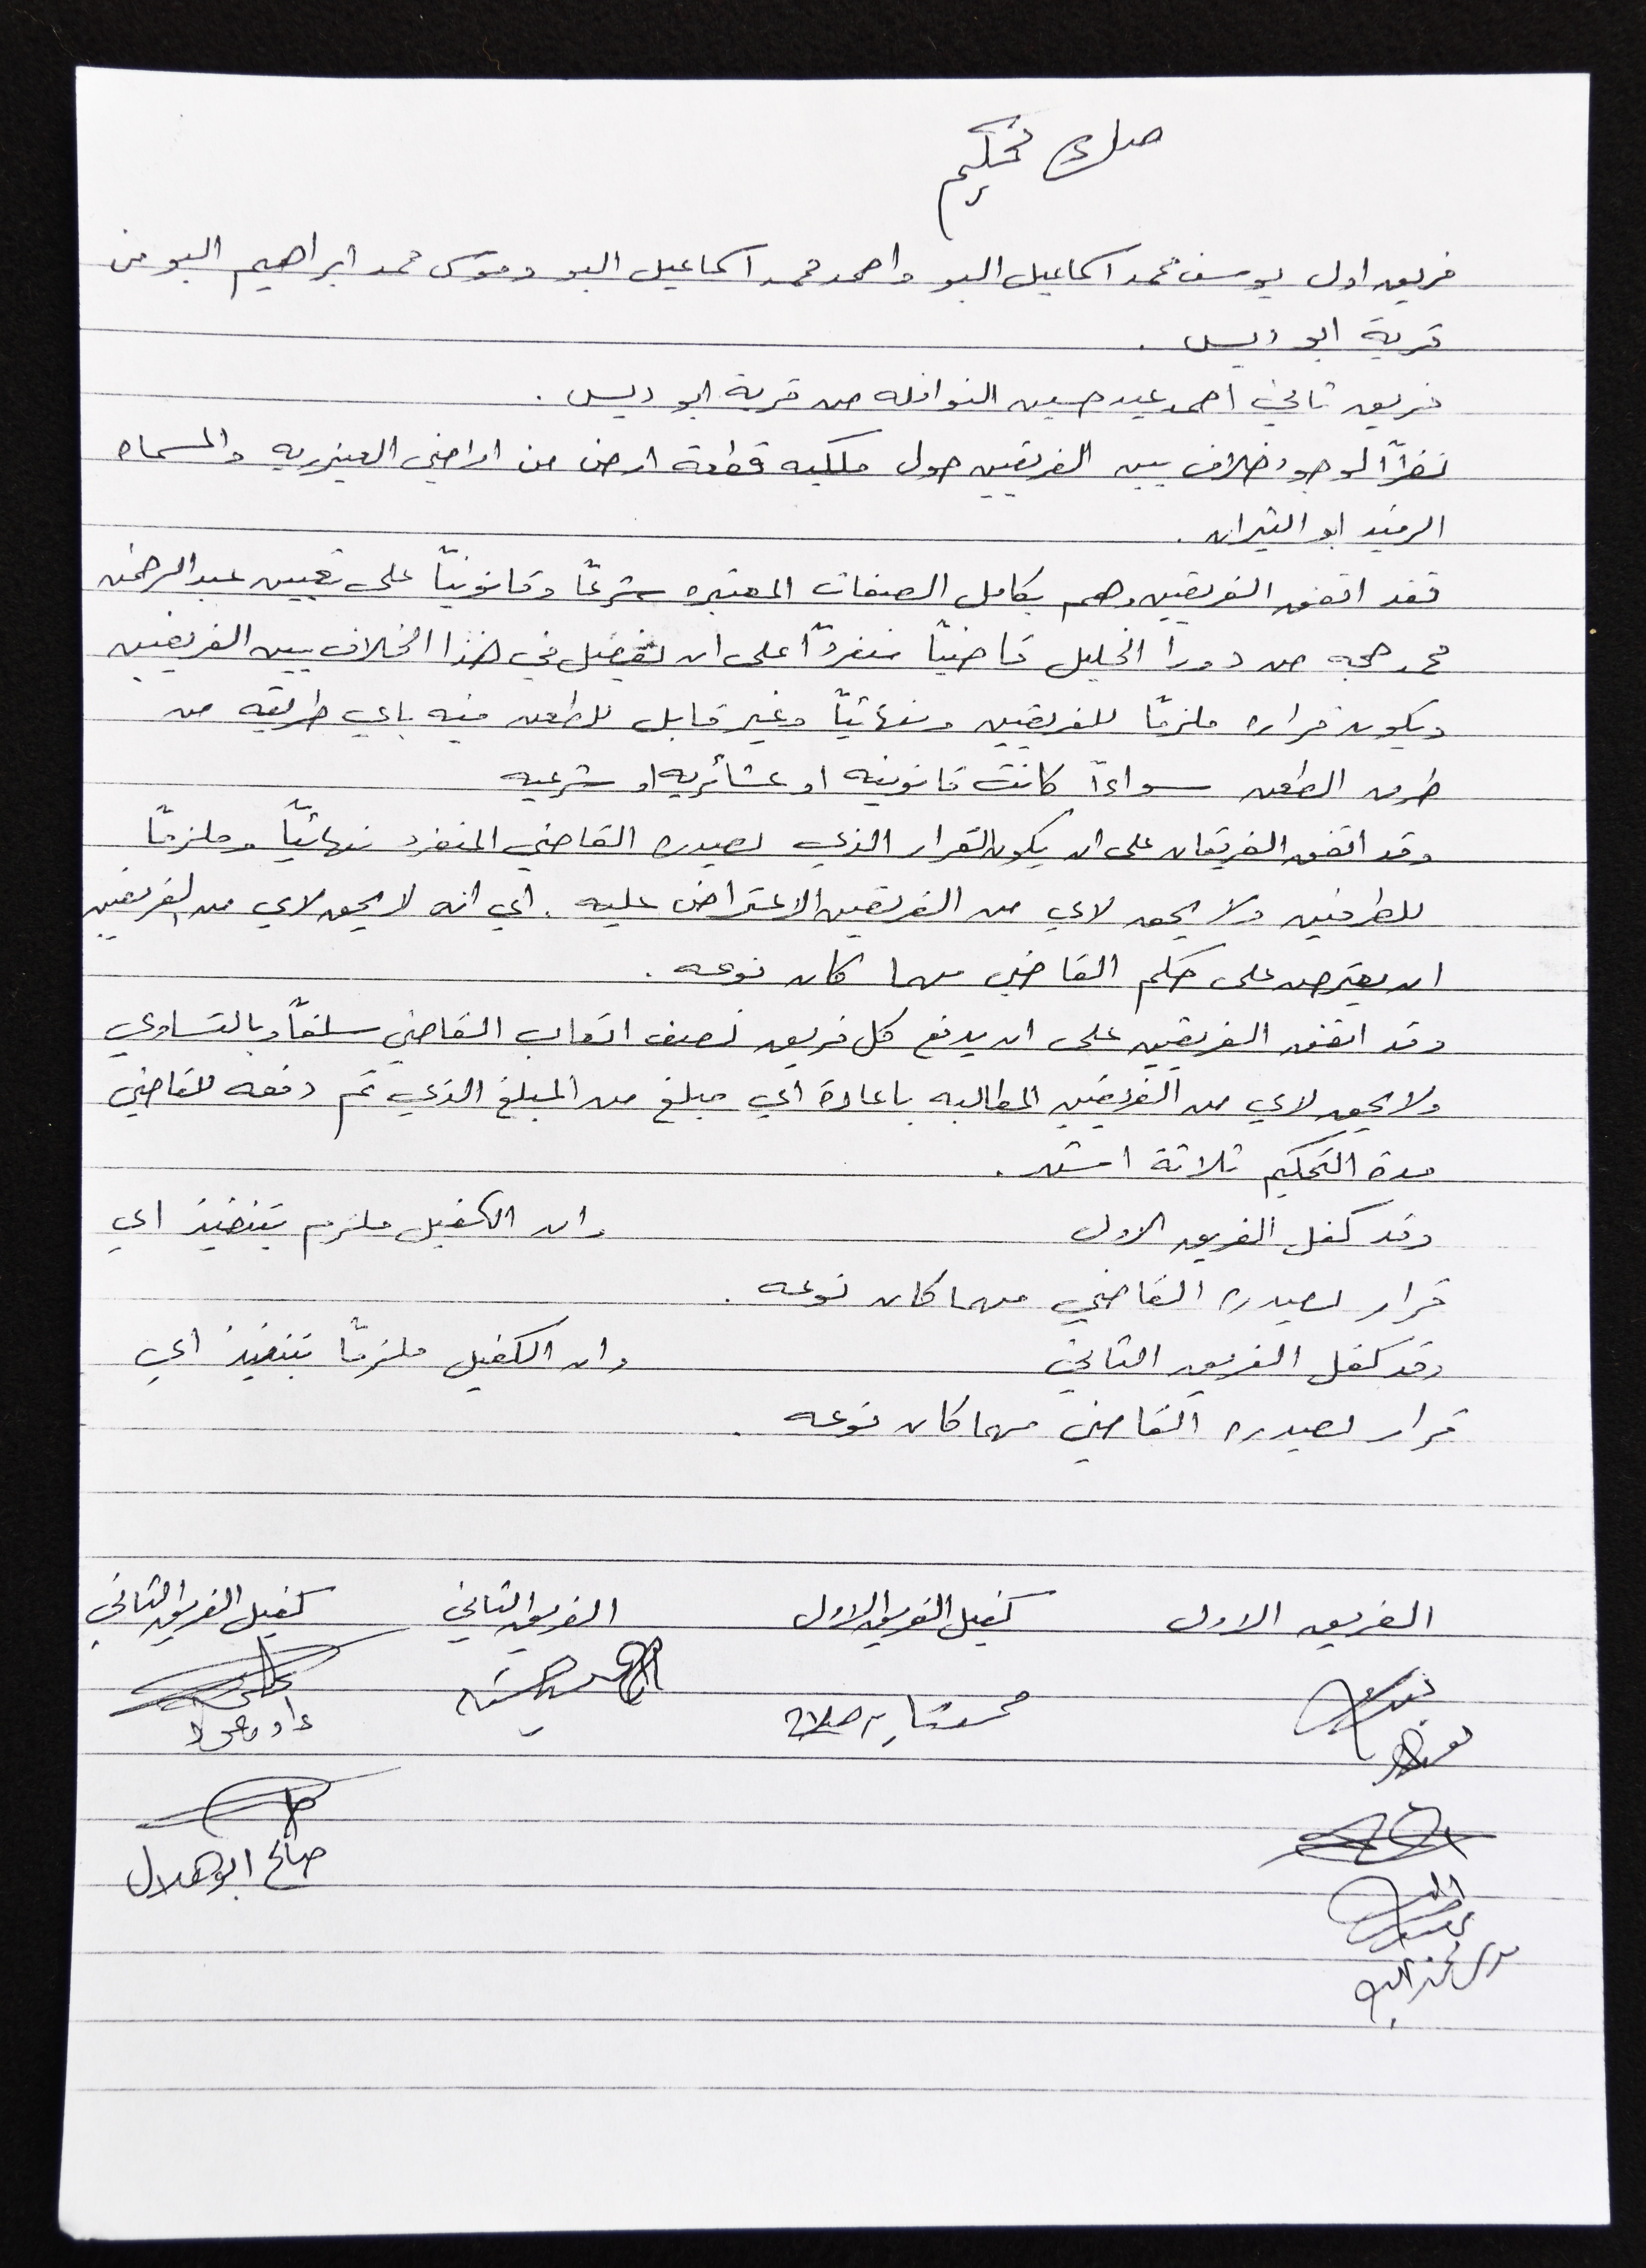 صك تحكيم
فريق اول يوسف محمد اسماعيل البو واحمد محمد اسماعيل البو وموسى محمد ابراهيم البو من
قرية ابو ديس .
فريق ثاني احمد عيد حسين النوافله من قرية ابو ديس .
نظراً لوجود خلاف بين الفريقين حول ملكيه قطعة ارض من اراضي العيزريه والمسماه
ابو النيران .
فقد اتفق الفريقين وهم بكامل الصفات المعتبره شرعاً وقانونياً على تعيين عبد الرحمن
محمد حجه من دورا الخليل قاضياً منفرداً على ان يفصل في هذا الخلاف بين الفريقين
ويكون قراره ملزماً للفريقين ونهائياً وغير قابل للطعن فيه باي طريقه من
طرق الطعن سواءاً كانت قانونيه او عشائريه او شرعيه
وقد اتفق الفريقان على ان يكون القرار الذي يصدره القاضي المنفرد نهائياً وملزماً
للطرفين ولا يحق لاي من الفريقين الاعتراض عليه . اي انه لا يحق لاي من الفريقين
ان يعترض على حكم القاضي مهما كان نوعه .
وقد اتفق الفريقين على ان يدفع كل فريق نصف اتعاب القاضي سلفاً وبالتساوي
ولا يحق لاي من الفريقين المطالبه باعادة اي مبلغ من المبلغ الذي تم دفعه للقاضي
مدة التحكيم ثلاثة اشهر .
وقد كفل الفريق الاول وان الكفيل ملزم بتنفيذ اي
قرار يصدره القاضي مهما كان نوعه .
وقد كفل الفريق الثاني وان الكفيل ملزماً بتنفيذ اي
قرار يصدره القاضي مهما كان نوعه .
الفريق الاول كفيل الفريق الاول الفريق الثاني كفيل الفريق الثاني
صالح ابو هلال
موسى محمد البو